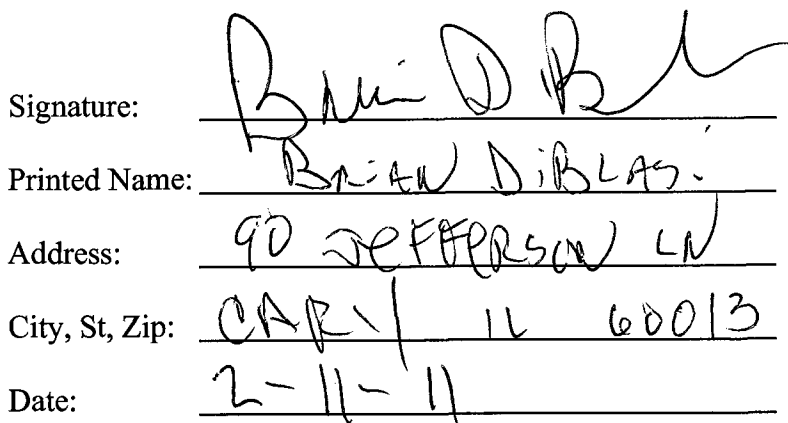 Signature: Brian DiB
Printed Name: BRiAN DiBLASi
Address: 90 JeFFeRSON LN
City, St, Zip: CARY IL 60013
Date: 2-11-11